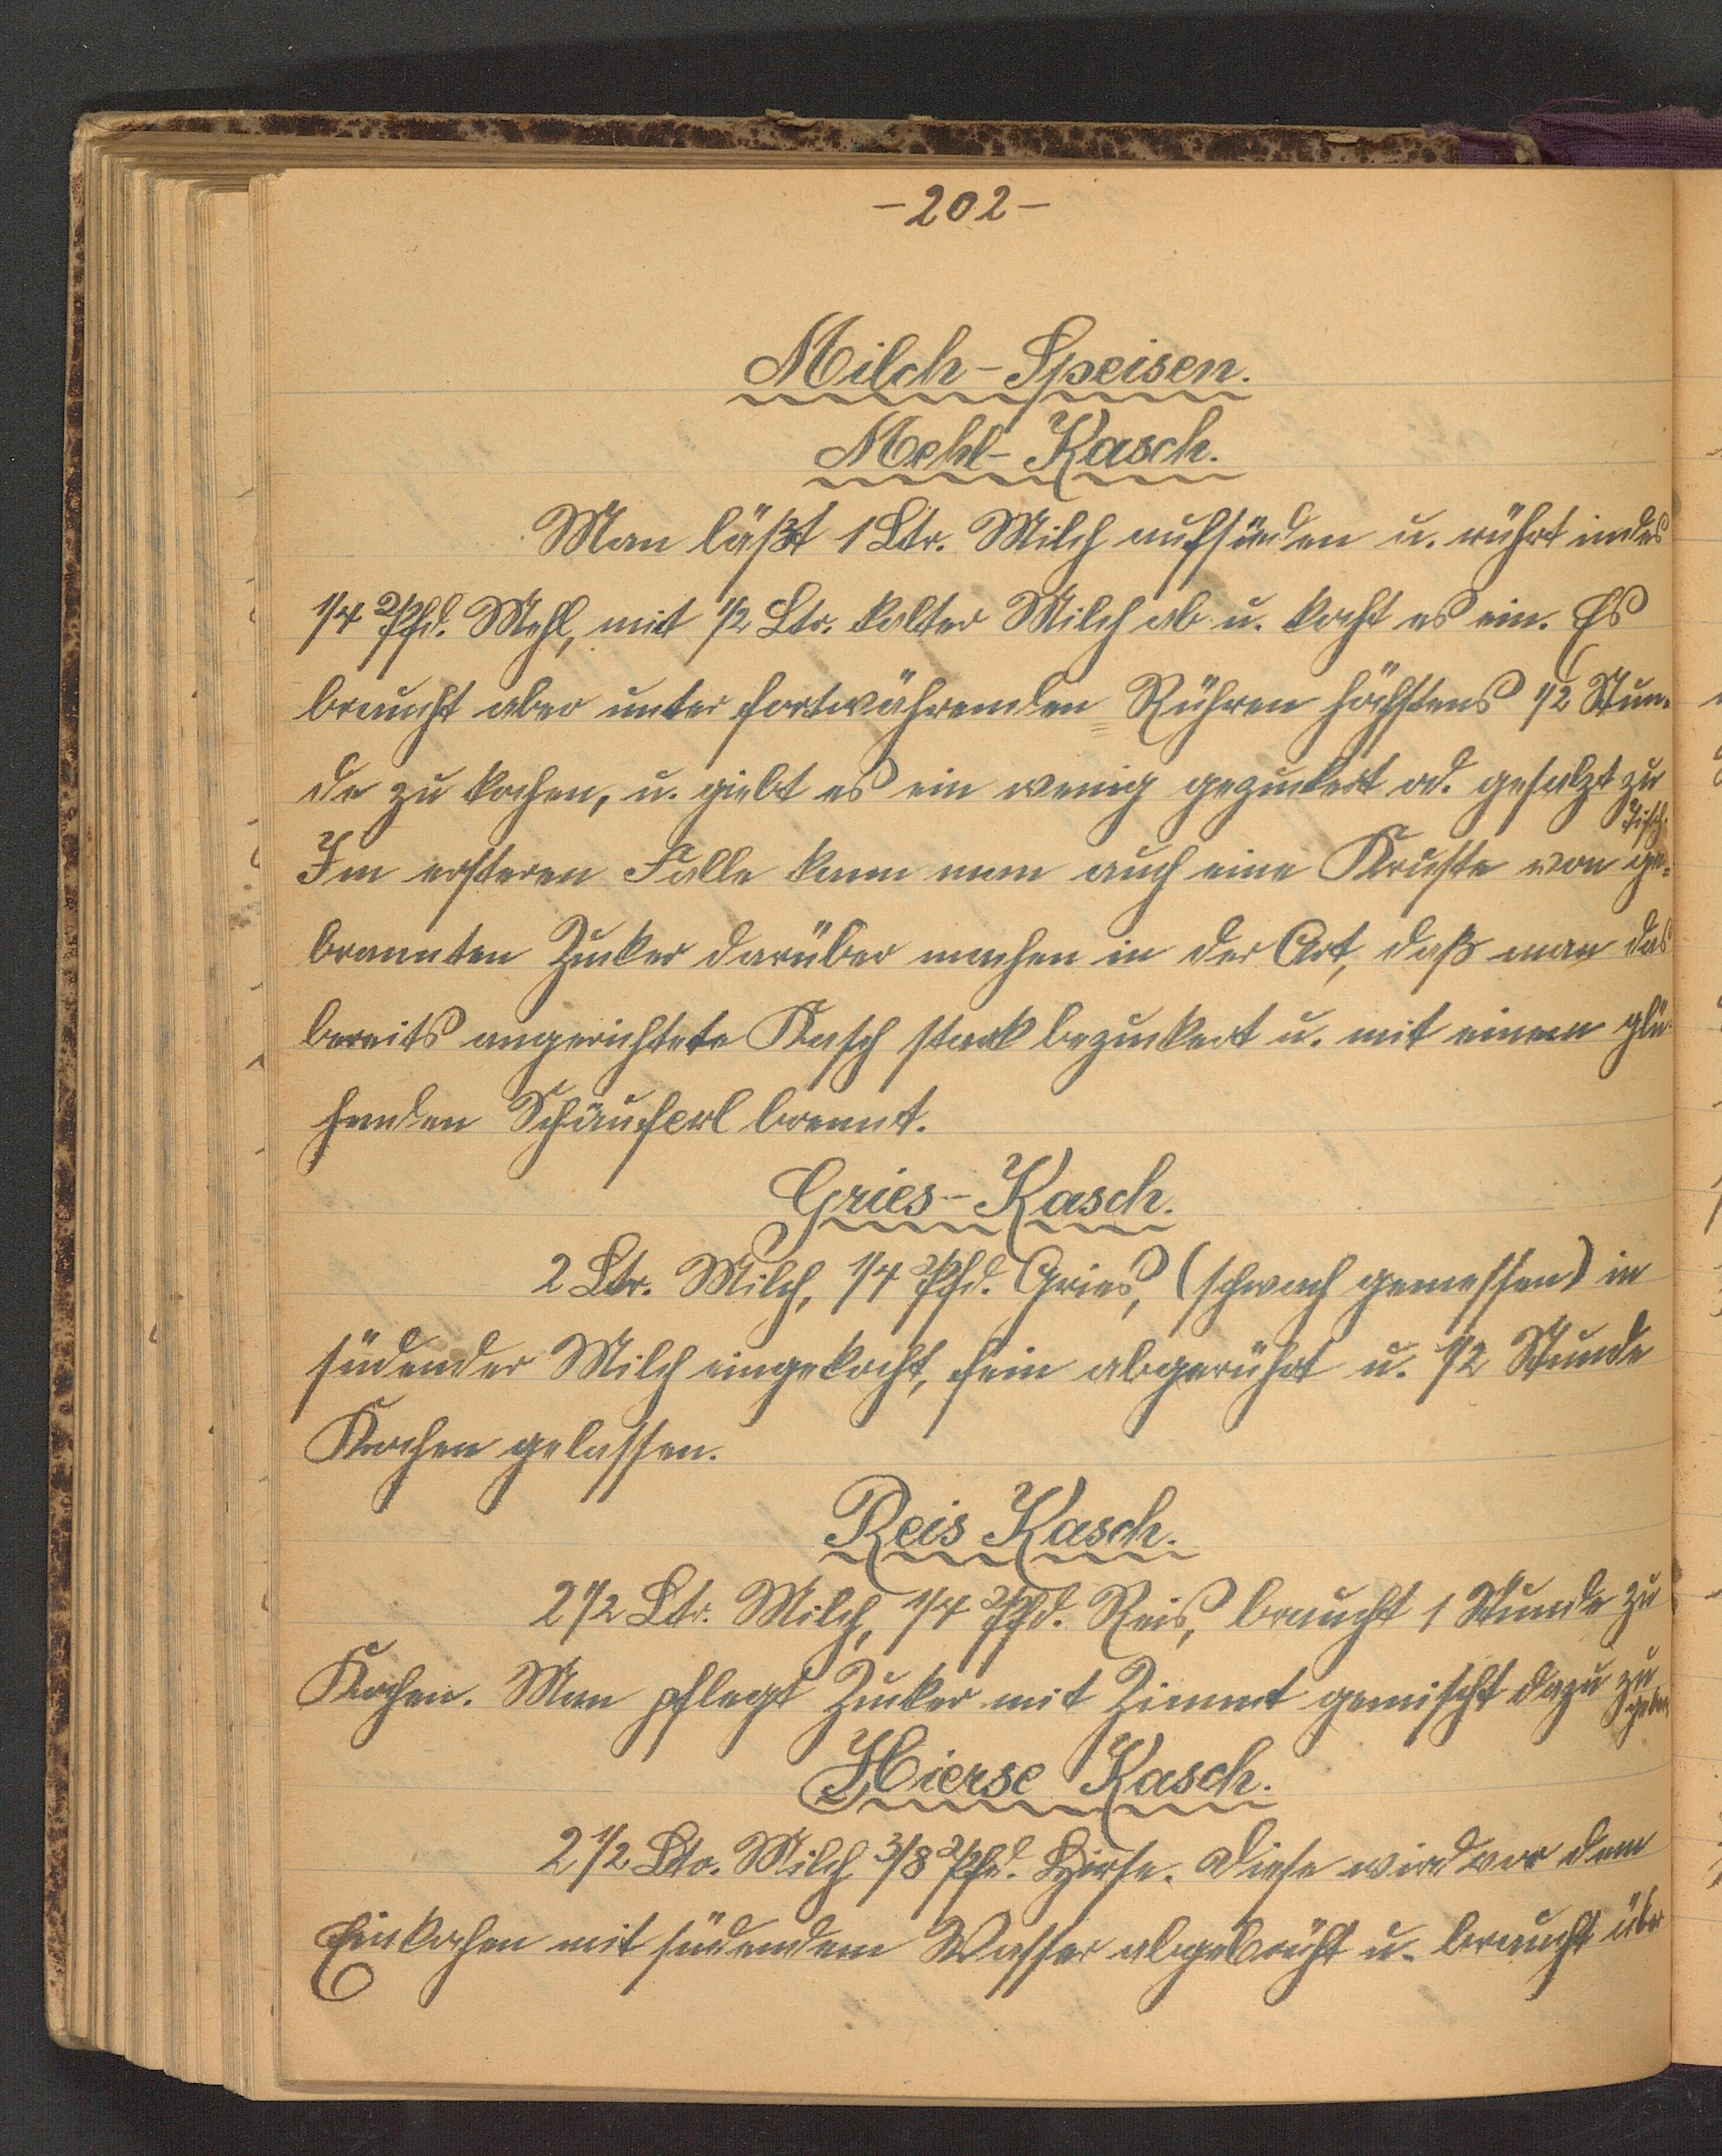 -202-
Milch-Speisen.
Mehl-Kasch.
Man läßt 1 Ltr. Milch aufsüden u. rührt indes
1/4 Pfd. Mehl, mit 1/2 Ltr. kalter Milch ab u. kocht es ein. Es
braucht aber unter fortwährenden Rühren höchstens 1/2 Stun-
de zu kochen, u. giebt es ein wenig gezuckert od. gesalzt zu
Tisch.
Im ersteren Falle kann man auch eine Kruste von ge-
brannten Zucker darüber machen in der Art, daß man das
bereits angerichtete Kasch stark bezuckert u. mit einem glü-
henden Schäuferl brennt.
Gries-Kasch.
2 Ltr. Milch, 1/4 Pfd. Gries, (schwach gemessen) in
südender Milch eingekocht, fein abgerührt u. 1/2 Stunde
Kochen gelassen.
Reis Kasch.
2 1/2 Ltr. Milch, 1/4 Pfd. Reis, braucht 1 Stunde zu
Kochen. Man pflegt Zucker mit Zimmt gemischt dazu zu
geben
Hierse Kasch.
2 1/2 Ltr. Milch 3/8 Pfd. Hirse. Diese wird vor dem
Einkochen mit südendem Wasser abgebrüht u. braucht über